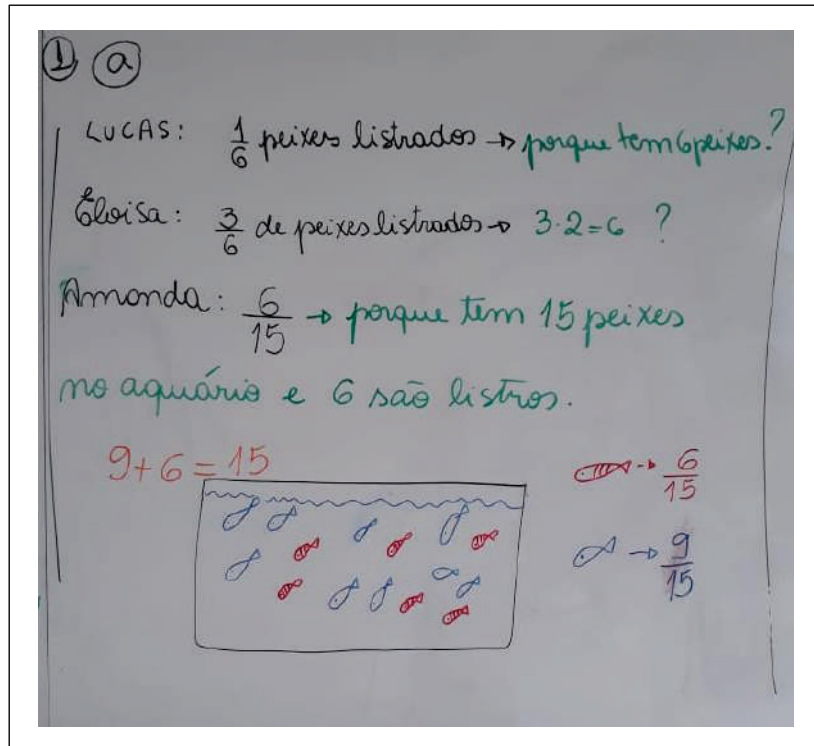 1 a
LUCAS: 1/6 peixes listrados → porque tem 6 peixes?
Eloisa: 3/6 de peixes listrados → 3·2=6 ?
Amanda: 6/15 → porque tem 15 peixes
no aquário e 6 são listros.
9+6=15
→ 6/15
→ 9/15